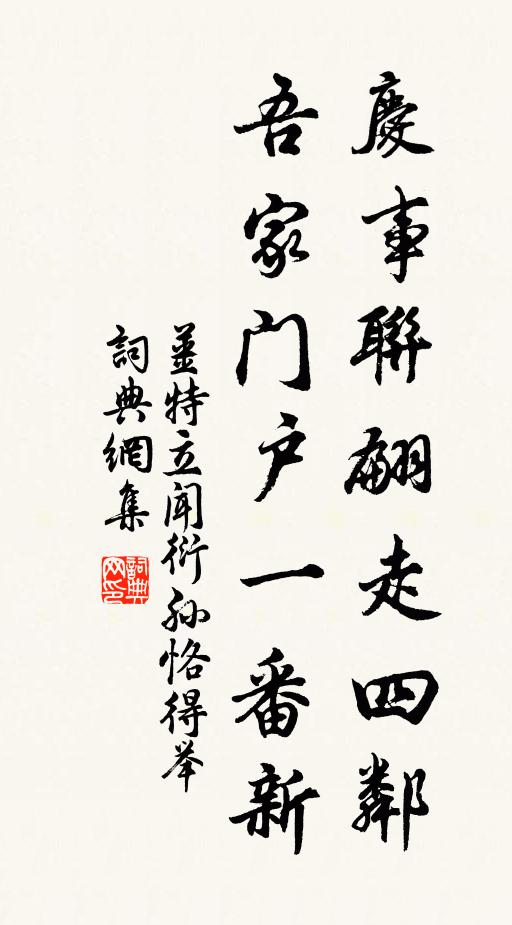 慶事聯翩走四鄰
吾家门户一番新
薑特立闻衍孙恪得举
詞典網集
詞典网印